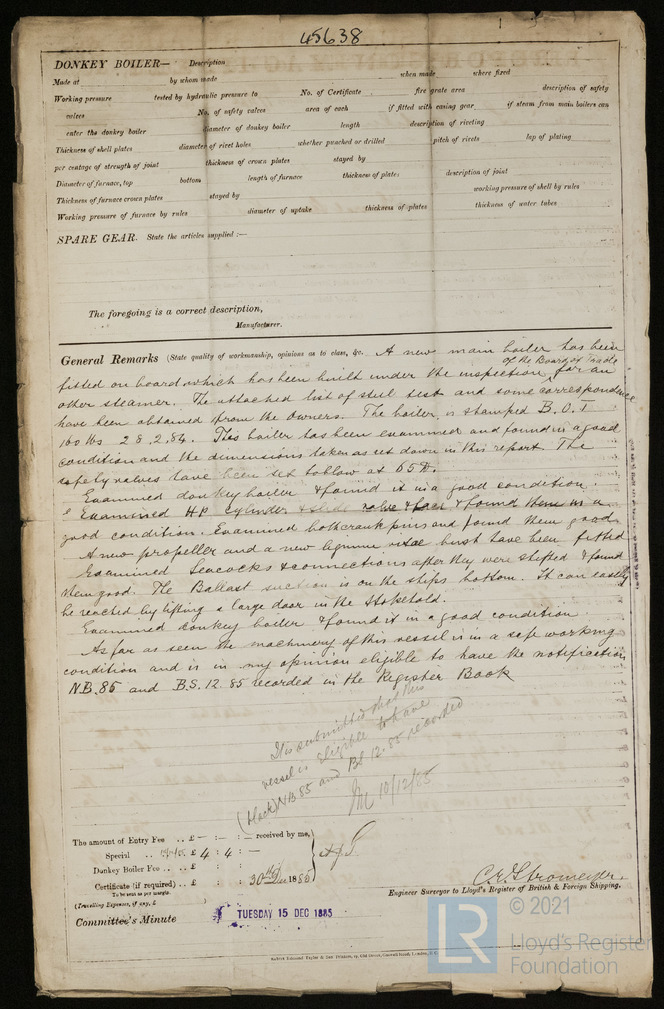 45638
DONKEY BOILER— Description
Made at by whom made when made where fixed
Working pressure tested by hydraulic pressure to No. of Certificate fire grate area description of safety
valves No. of safety valves area of each if fitted with easing gear if steam from main boilers can
enter the donkey boiler diameter of donkey boiler length description of riveting
Thickness of shell plates diameter of rivet holes whether punched or drilled pitch of rivets lap of plating
per centage of strength of joint thickness of crown plates stayed by
Diameter of furnace, top bottom length of furnace thickness of plates description of joint
Thickness of furnace crown plates stayed by working pressure of shell by rules
Working pressure of furnace by rules diameter of uptake thickness of plates thickness of water tubes
SPARE GEAR. State the articles supplied :—
The foregoing is a correct description,
Manufacturer.
General Remarks (State quality of workmanship, opinions as to class, &c. A new main boiler has been
of the Board of Trade
fitted on board which has been built under the inspection for an
other steamer. The attached list of steel test and some correspondence
have been obtained from the Owners. The boiler is stamped B.O.T
160 lbs 28.2.84. This boiler has been examined and found in a good
condition and the dimensions taken as set down in this report. The
safety valves have been set to blow at 65 lb.
Examined donkey boiler & found it in a good condition.
Examined HP Cylinder & slide valve & face & found them in a
good condition. Examined both crank pins and found them good
A new propeller and a new lignum vitae bush have been fitted
Examined Seacocks & connections after they were shifted & found
them good. The Ballast suction is on the ships bottom. It can easily
be reached by lifting a large door in the Stokehold.
Examined donkey boiler & found it in a good condition
As far as seen the machinery of this vessel is in a safe working
condition and is in my opinion eligible to have the notification
N.B. 85 and B.S. 12. 85 recorded in the Register Book
It is submitted that this
vessel is eligible to have
(black) NB 85 and BS 12.85 recorded
10/12/85
The amount of Entry Fee .. £ — : — : — received by me,
Special .. £ 4 : 4 : —
Donkey Boiler Fee .. £ : :
Certificate (if required) .. £ : : 30th 1885
To be sent as per margin.
(Travelling Expenses, if any, £ )
C.E. Stromeyer.
Engineer Surveyor to Lloyd's Register of British & Foreign Shipping.
Committee's Minute TUESDAY 15 DEC 1885
LR © 2021
Lloyd's Register
Foundation